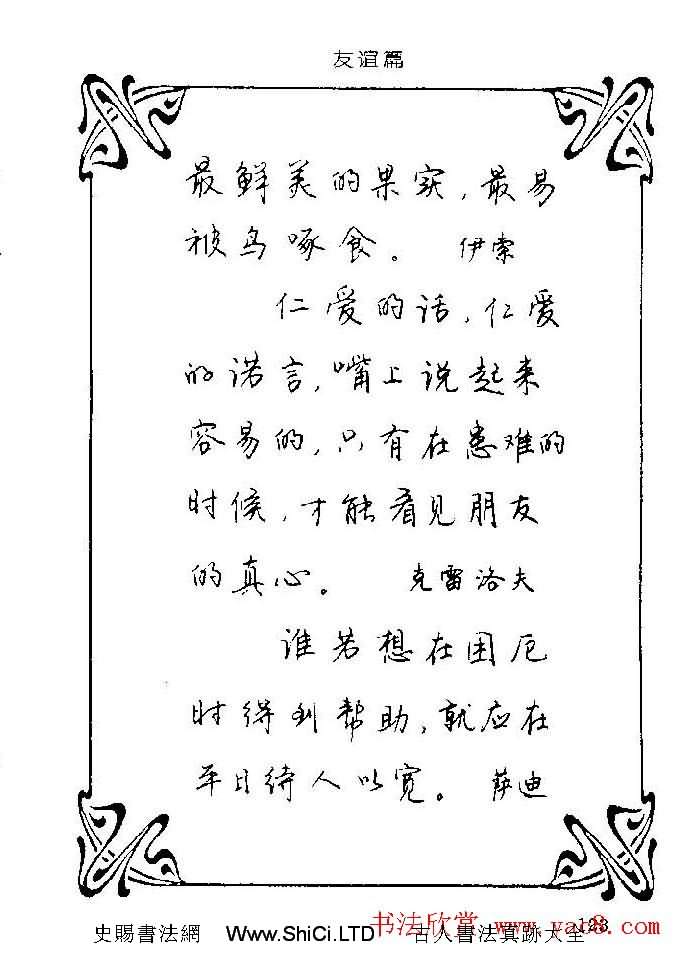 友谊篇
最鲜美的果实，最易
被鸟啄食。 伊索
仁爱的话，仁爱
的诺言，嘴上说起来
容易的，只有在患难的
时候，才能看见朋友
的真心。 克雷洛夫
谁若想在困厄
时得到帮助，就应在
平日待人以宽。 萨迪
123
书法欣赏 www.yac8.com
史賜書法網 Www.ShiCi.LTD 古人書法真跡大全